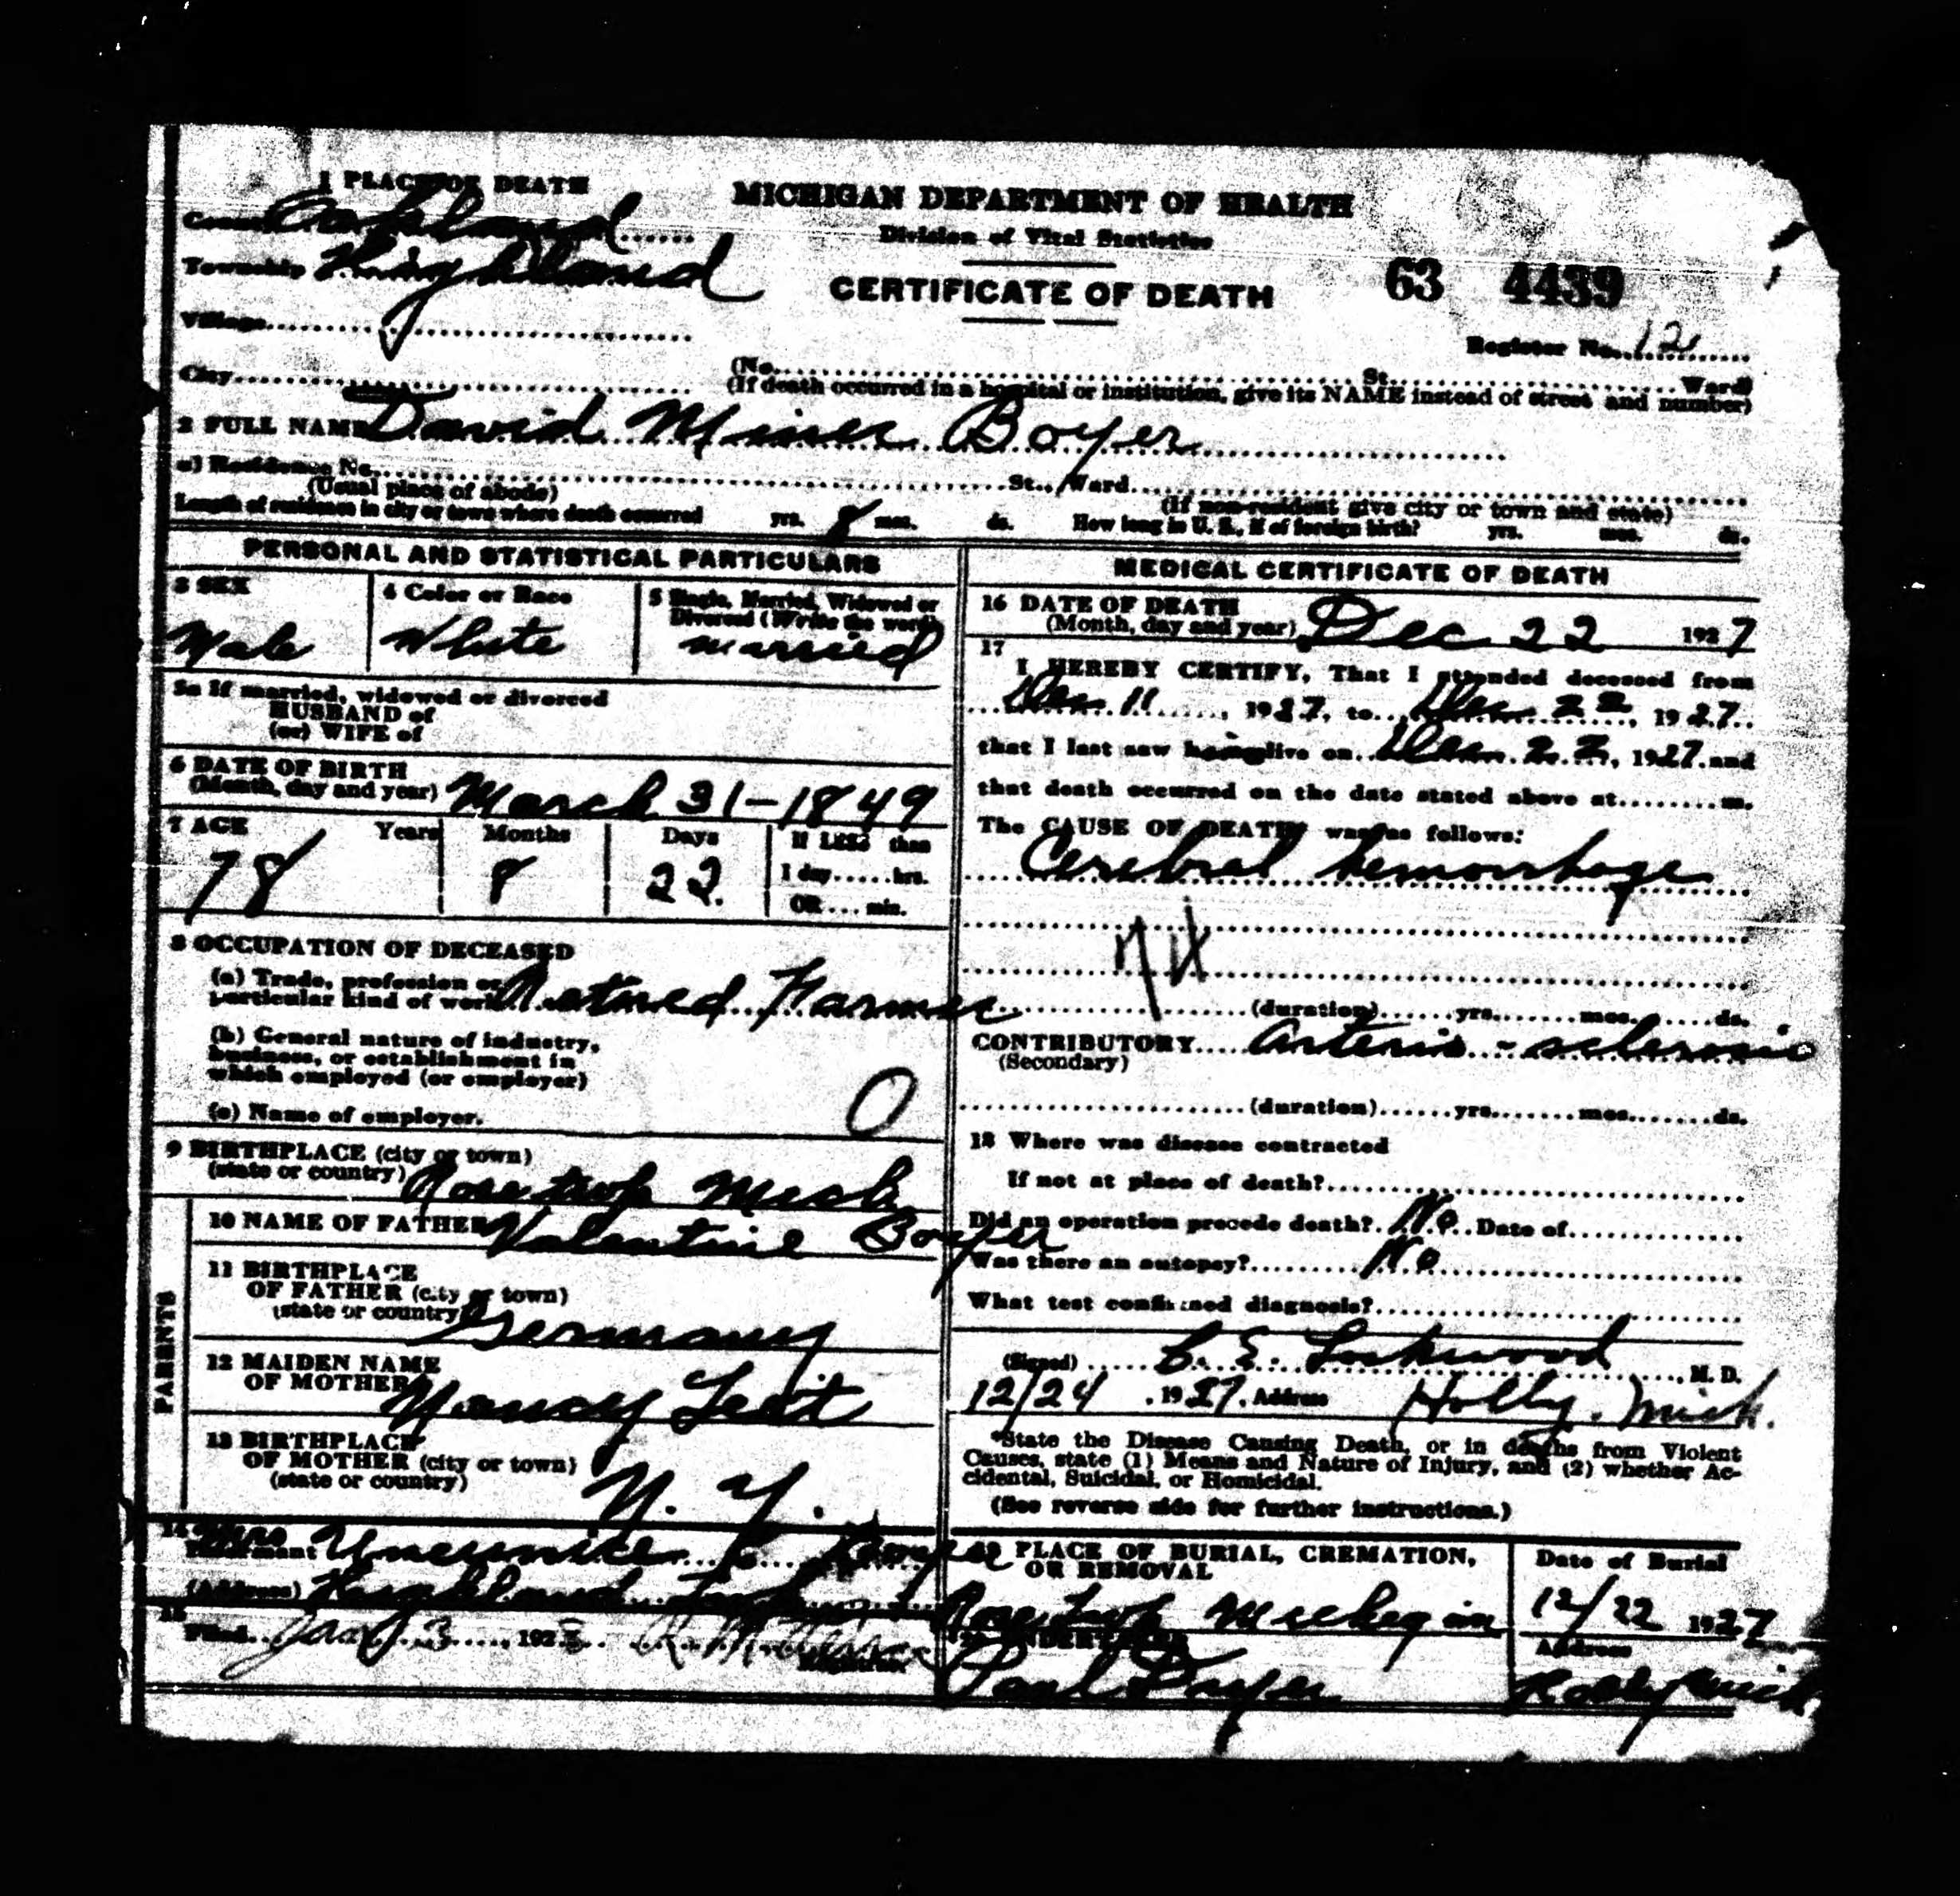 1 PLACE OF DEATH
MICHIGAN DEPARTMENT OF HEALTH
Division of Vital Statistics
County Oakland
Township Highland
CERTIFICATE OF DEATH
63 4439
Village
Register No. 12
City
(No. St. Ward)
(If death occurred in a hospital or institution, give its NAME instead of street and number)
2 FULL NAME David Miner Boyer
a) Residence No. St., Ward
(Usual place of abode) (If non-resident give city or town and state)
Length of residence in city or town where death occurred yrs. 8 mos. ds. How long in U. S., if of foreign birth? yrs. mos. ds.
PERSONAL AND STATISTICAL PARTICULARS
3 SEX 4 Color or Race 5 Single, Married, Widowed or
Divorced (Write the word)
Male White married
5a If married, widowed or divorced
HUSBAND of
(or) WIFE of
6 DATE OF BIRTH
(Month, day and year) March 31-1849
7 AGE Years Months Days If LESS than
78 8 22. 1 day......hrs.
OR....min.
8 OCCUPATION OF DECEASED
(a) Trade, profession or
particular kind of work Retired Farmer
(b) General nature of industry,
business, or establishment in
which employed (or employer)
(c) Name of employer. 0
9 BIRTHPLACE (city or town)
(state or country) Rose twp Mich
PARENTS
10 NAME OF FATHER Valentine Boyer
11 BIRTHPLACE
OF FATHER (city or town)
(state or country) Germany
12 MAIDEN NAME
OF MOTHER Nancy
13 BIRTHPLACE
OF MOTHER (city or town)
(state or country) N. Y.
14 Informant Mrs Boyer
(Address) Highland
15 Filed Jan 3, 1928 R. M.
Registrar
MEDICAL CERTIFICATE OF DEATH
16 DATE OF DEATH
(Month, day and year) Dec 22 1927
17
I HEREBY CERTIFY, That I attended deceased from
Dec 11, 1927, to Dec 22, 1927
that I last saw him alive on Dec 22, 1927 and
that death occurred on the date stated above at m.
The CAUSE OF DEATH was as follows:
Cerebral hemorrhage
74
(duration) yrs. mos. ds.
CONTRIBUTORY Arterio-sclerosis
(Secondary)
(duration) yrs. mos. ds.
18 Where was disease contracted
If not at place of death?
Did an operation precede death? No Date of
Was there an autopsy? No
What test confirmed diagnosis?
(Signed) C. E. Lockwood, M. D.
12/24, 1927. Address Holly, Mich.
*State the Disease Causing Death, or in deaths from Violent
Causes, state (1) Means and Nature of Injury, and (2) whether Ac-
cidental, Suicidal, or Homicidal.
(See reverse side for further instructions.)
19 PLACE OF BURIAL, CREMATION,
OR REMOVAL
Date of Burial
Rose Twp Michigan 12/22 1927
20 UNDERTAKER Address
Paul Holly Mich